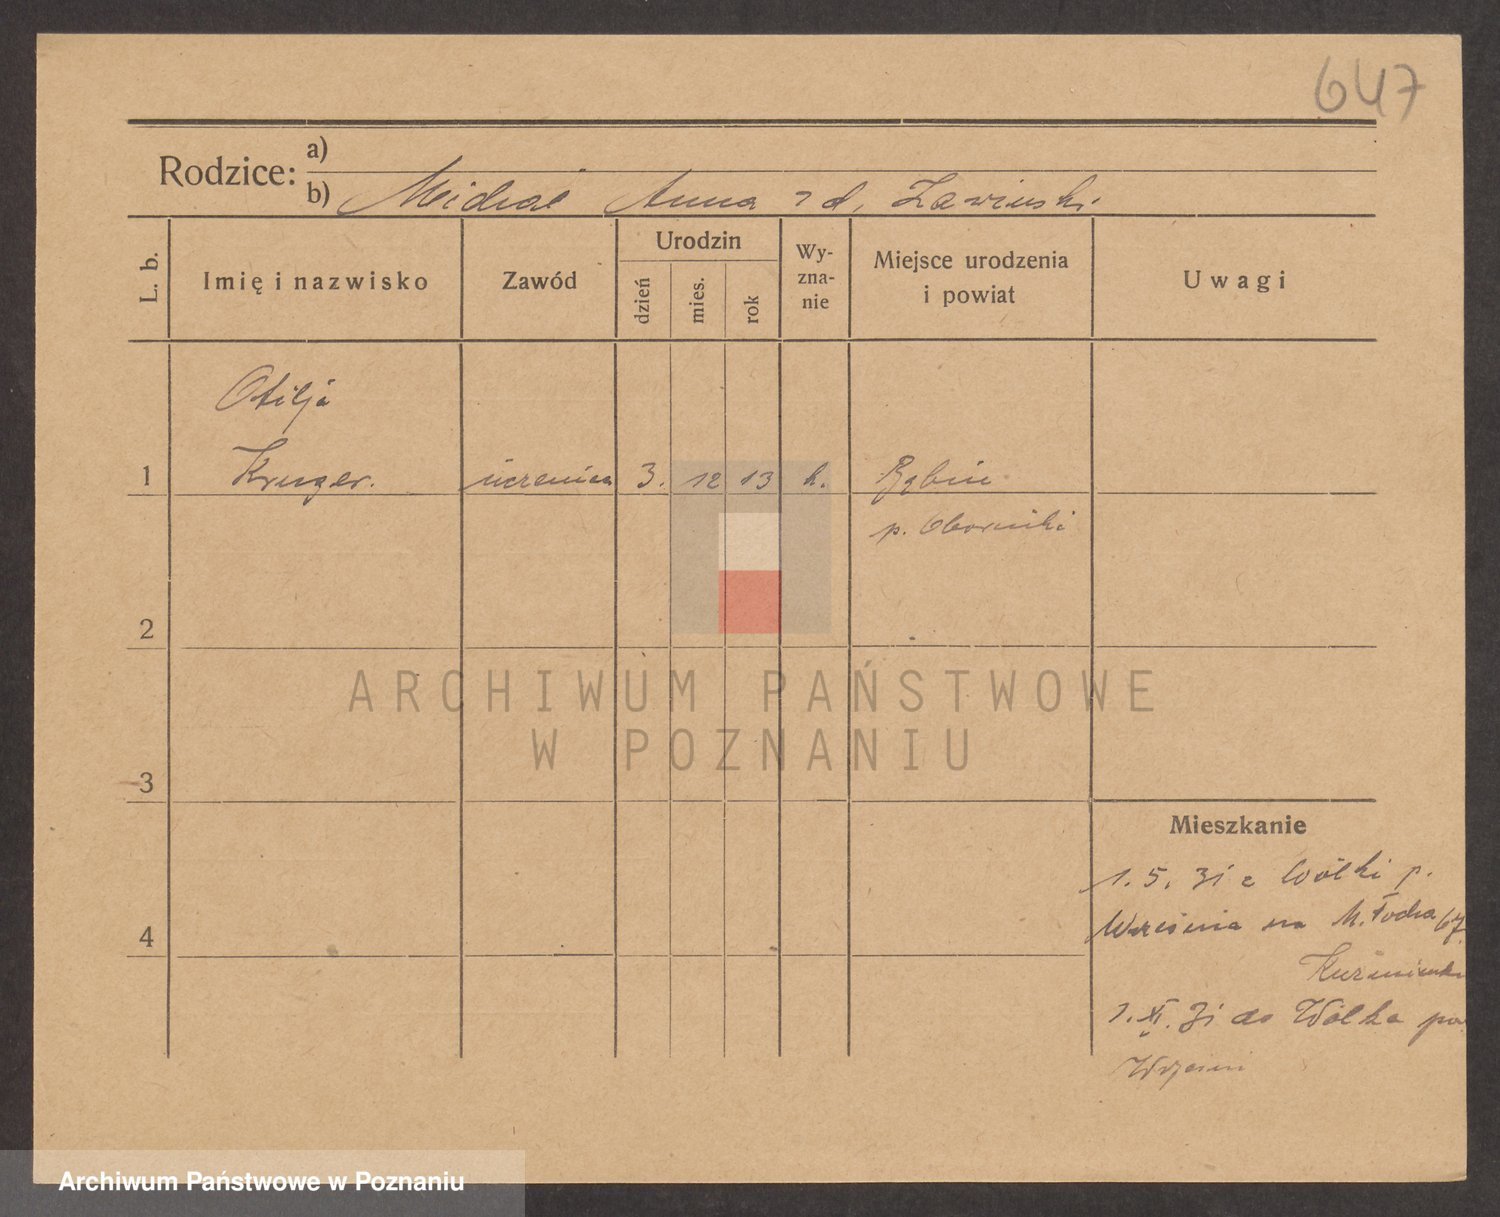 647
Rodzice: a)
b) Michał Anna z d. Zawinski
L. b.
Imię i nazwisko
Zawód
Urodzin
dzień
mies.
rok
Wy-
zna-
nie
Miejsce urodzenia
i powiat
Uwagi
Otilja
1 Kruger. uczenica 3. 12 13 k. Bąbin
p. Oborniki
2
ARCHIWUM PAŃSTWOWE
W POZNANIU
3
Mieszkanie
1. 5. 31 z Wólki p.
4 Września na 67
1. XI. 31 do Wólka pow
Wrześni
Archiwum Państwowe w Poznaniu